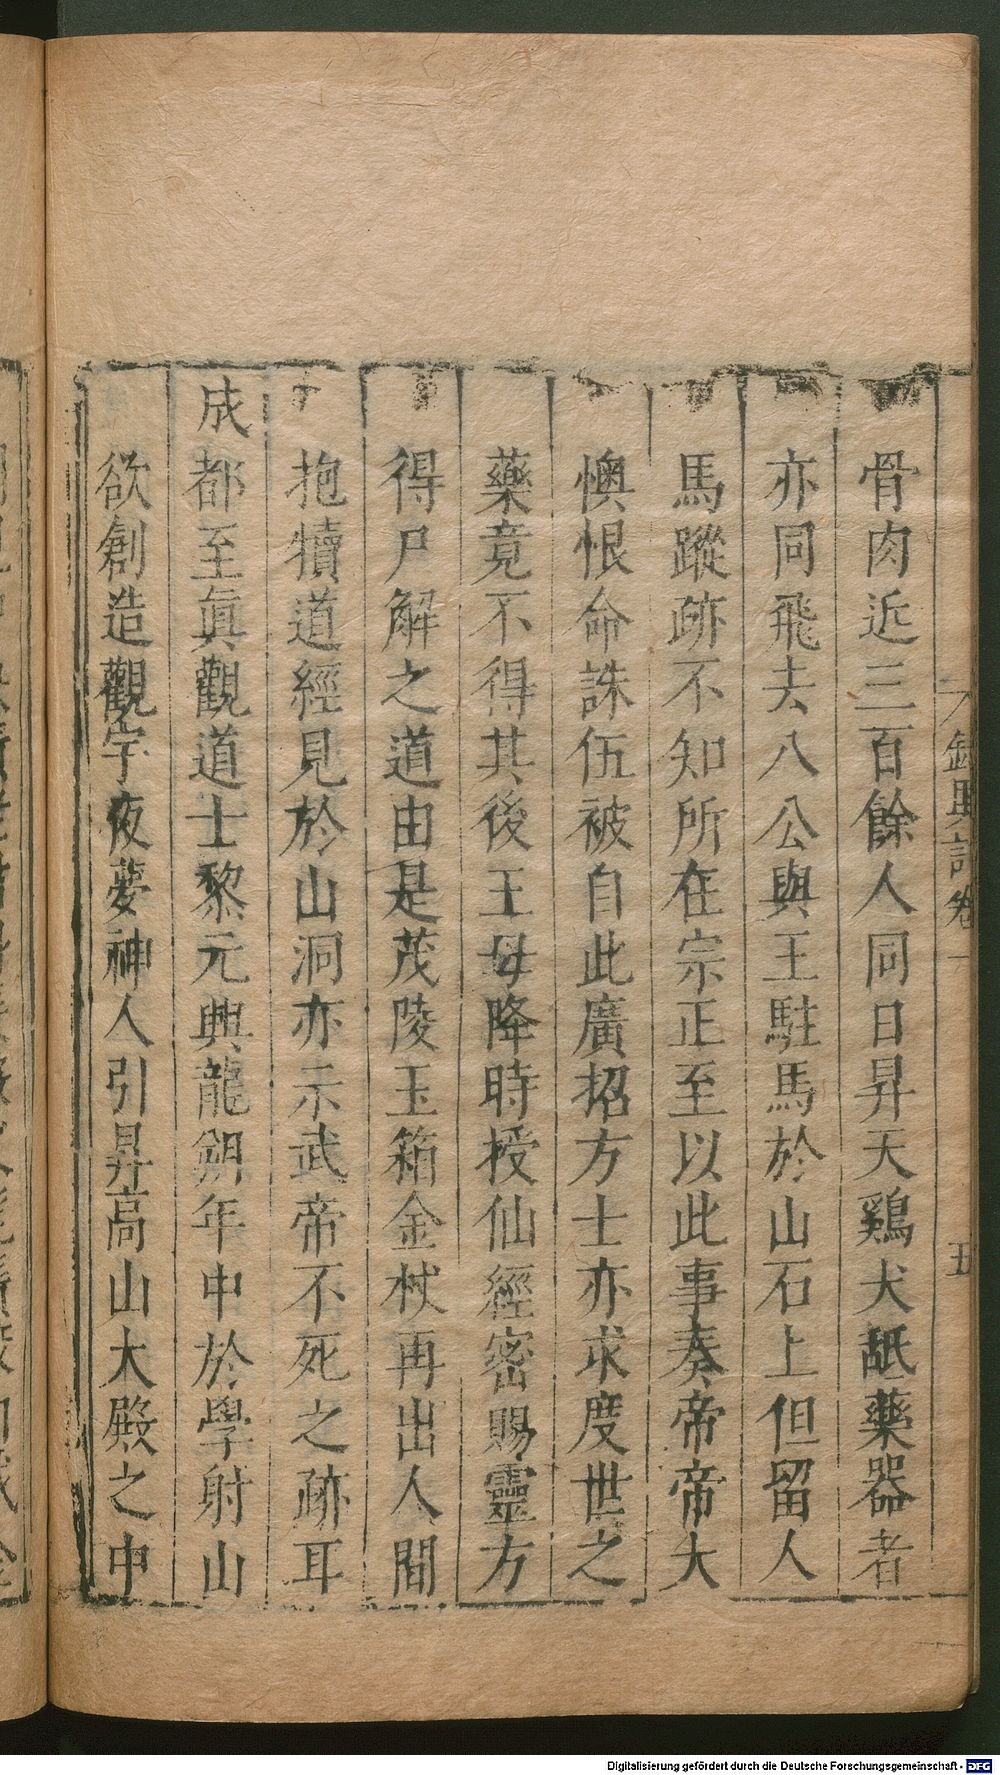 錄異記卷一
五
骨肉近三百餘人同日昇天鷄犬舐藥器者
亦同飛去八公與王駐馬於山石上但留人
馬蹤跡不知所在宗正至以此事奏帝帝大
懊恨命誅伍被自此廣招方士亦求度世之
藥竟不得其後王母降時授仙經密賜靈方
得尸解之道由是茂陵玉箱金杖再出人間
抱犢道經見於山洞亦示武帝不死之跡耳
成都至眞觀道士黎元興龍朔年中於學射山
欲創造觀宇夜夢神人引昇高山大殿之中
Digitalisierung gefördert durch die Deutsche Forschungsgemeinschaft - DFG